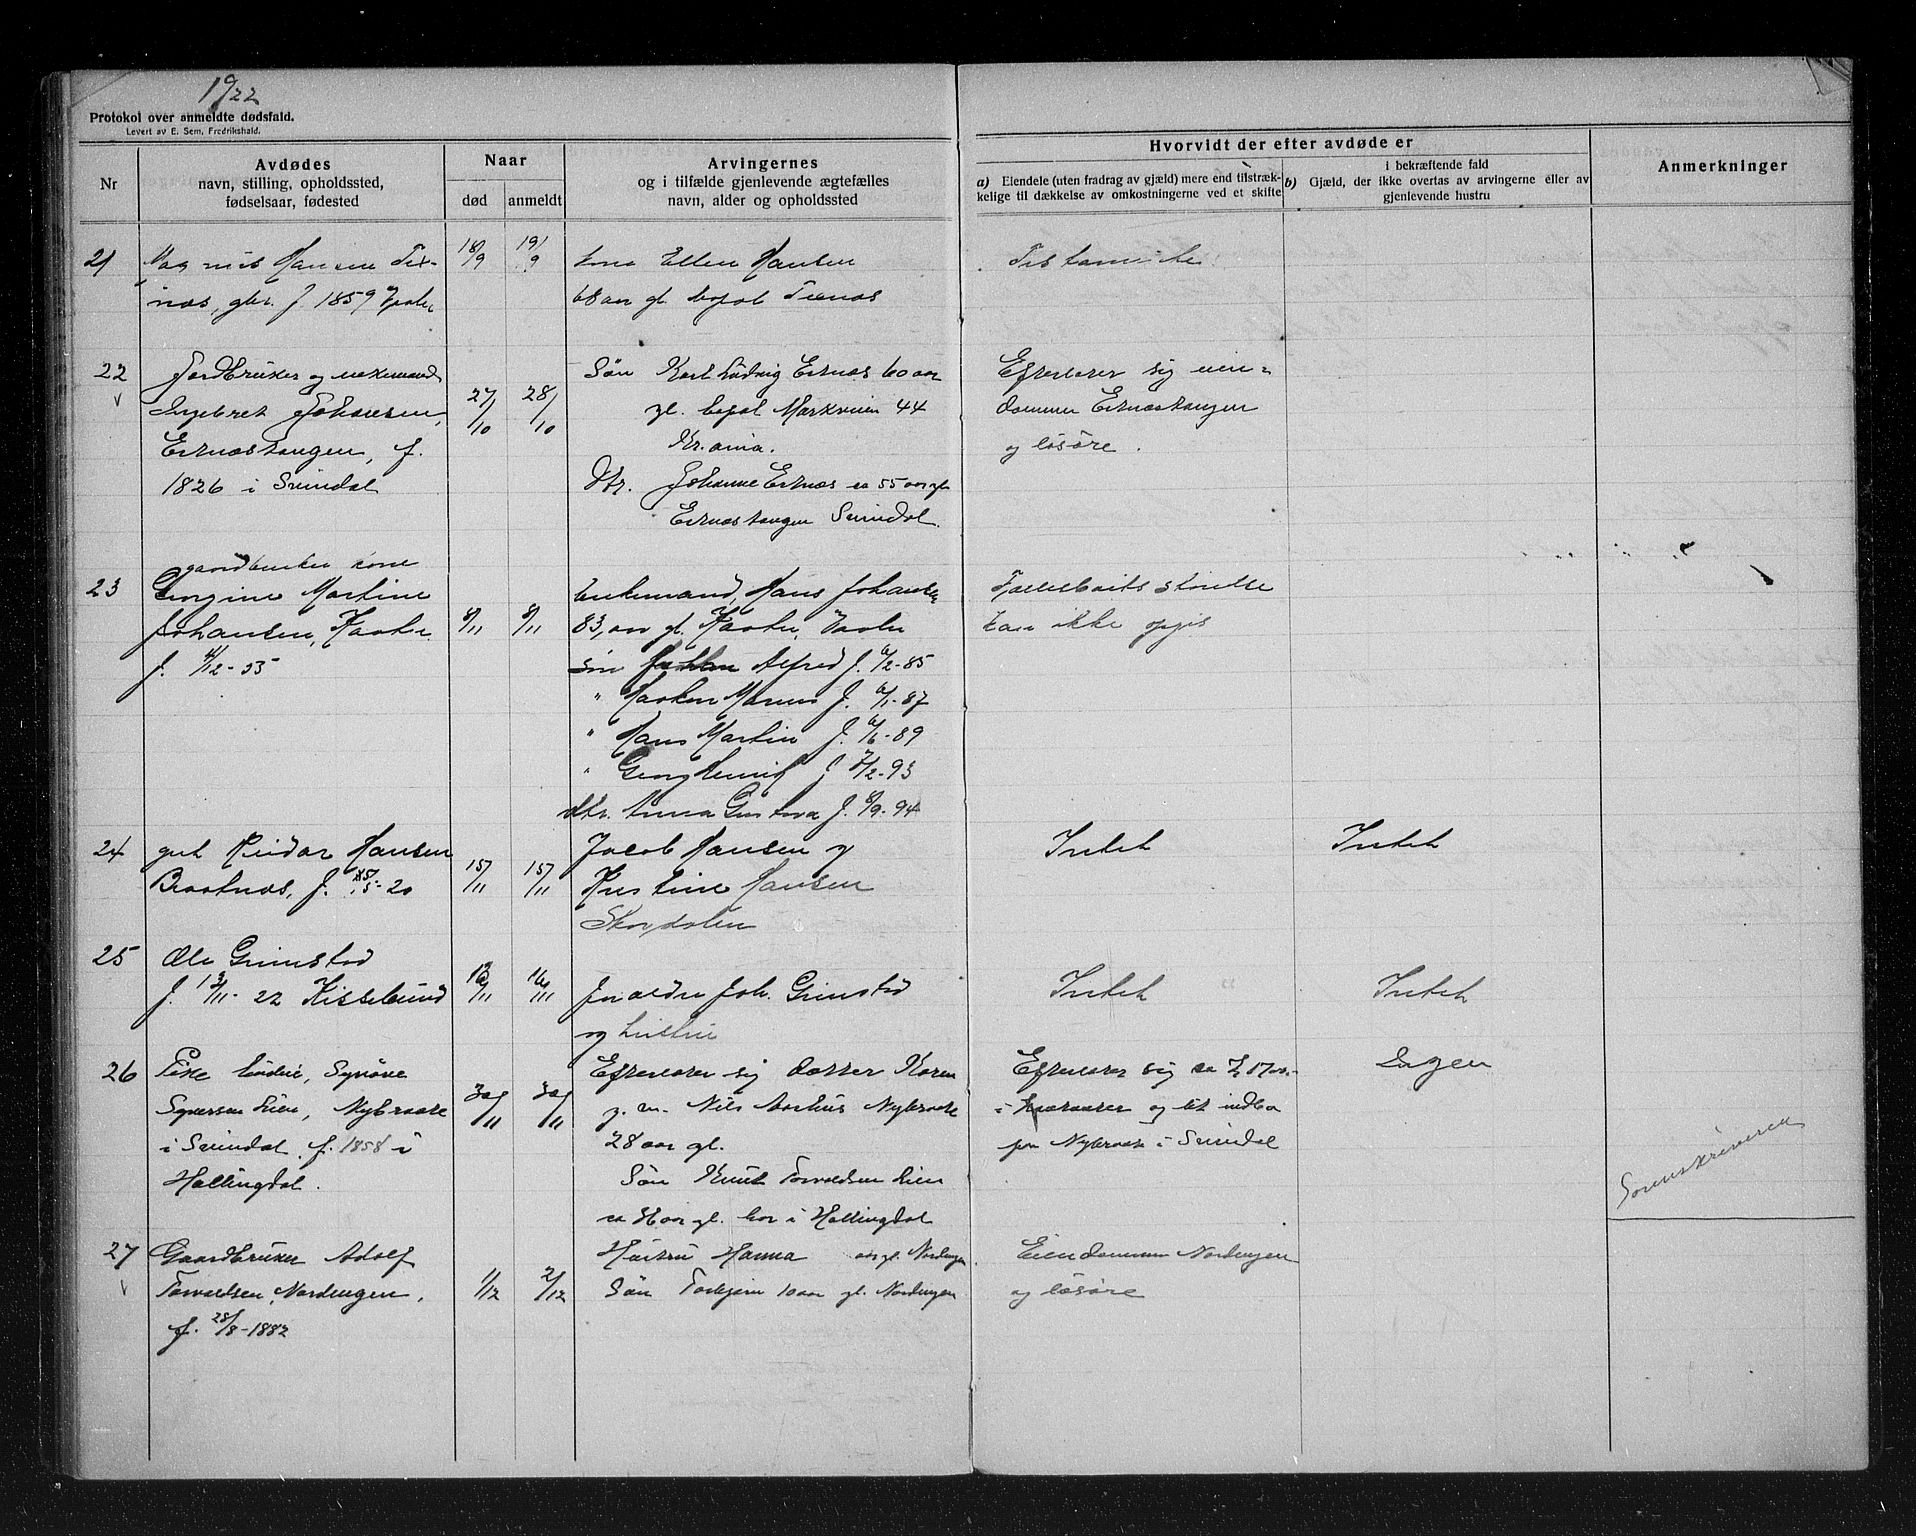 1922
Protokol over anmeldte dødsfald.
Levert av E. Sem, Fredrikshald.
Nr
Avdødes
navn, stilling, opholdssted,
fødselsaar, fødested
Naar
død
anmeldt
Arvingernes
og i tilfælde gjenlevende ægtefælles
navn, alder og opholdssted
Hvorvidt der efter avdøde er
a) Eiendele (uten fradrag av gjæld) mere end tilstræk-
kelige til dækkelse av omkostningerne ved et skifte
i bekræftende fald
b) Gjæld, der ikke overtas av arvingerne eller av
gjenlevende hustru
Anmerkninger
21
Magnus Hansen
gbr. f. 1859
18/9
19/9
Kone Ellen Hansen
68 aar gl. bopal
Testamente
22
Jordbruker og enkemand
Ingebret Johansen,
Ertnæstangen, f.
1826 i Svindal
27/10
28/10
Søn Karl Ludvig Ertnæs 60 aar
gl. bopal Markveien 44
Kr.ania.
Dtr. Johanne Ertnæs ca 55 aar gl
Ertnæstangen Svindal.
Efterlater sig eien=
dommen Ertnæstangen
og løsøre.
23
gaardbruker kone
Georgine Martine
Johansen,
f. 4/12-55
8/11
8/11
Enkemand, Hans Johansen
83, aar gl.
søn Johan Alfred f. 6/2-85
" Haaken Marius f. 6/1-87
" Hans Martin f. 6/6-89
" Georg Henrik f 7/2-93
dtr. Anna Gustava f. 8/9-94
Fællesboets størrelse
kan ikke opgis
24
gut Reidar Hansen
Braatnæs, f. 5-20
15/11
15/11
Jacob Hansen og
Kristine Hansen
Skogdalen
Intet
Intet
25
Ole Grimstad
f. 13/11-22 Kisselund
16/11
16/11
foraldre Joh. Grimstad
og hustru
Intet
Intet
26
Pike Synøve
Syversen Lien, Nybraate
i Svindal. f. 1858 i
Hallingdal.
30/11
30/11
Efterlater sig datter Karen
g. m. Nils Aarhus Nybraate
28 aar gl.
Søn Knut Torvaldsen Lien
ca 36 aar gl. bor i Hallingdal
Efterlater sig ca
i og lit indbo
paa Nybraate i Svindal
Ingen
Sorenskriveren
27
Gaardbruker Adolf
Torvaldsen, Nordengen,
f. 28/8-1882
1/12
2/12
Hustru Hanna aar gl. Nordengen
Søn Torbjørn 10 aar gl. Nordengen
Eiendommen Nordengen
og løsøre